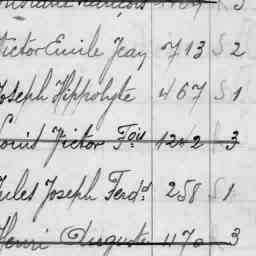 Victor Emile Jean 713 S 2
Joseph Hippolyte 467 S 1
Louis Victor Fois 1242 3
Jules Joseph Ferd.d 258 S 1
Henri Auguste 1170 3